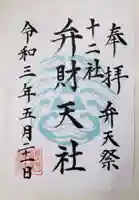 奉拝 弁天祭
十二社
弁財天社
令和三年五月二十一日